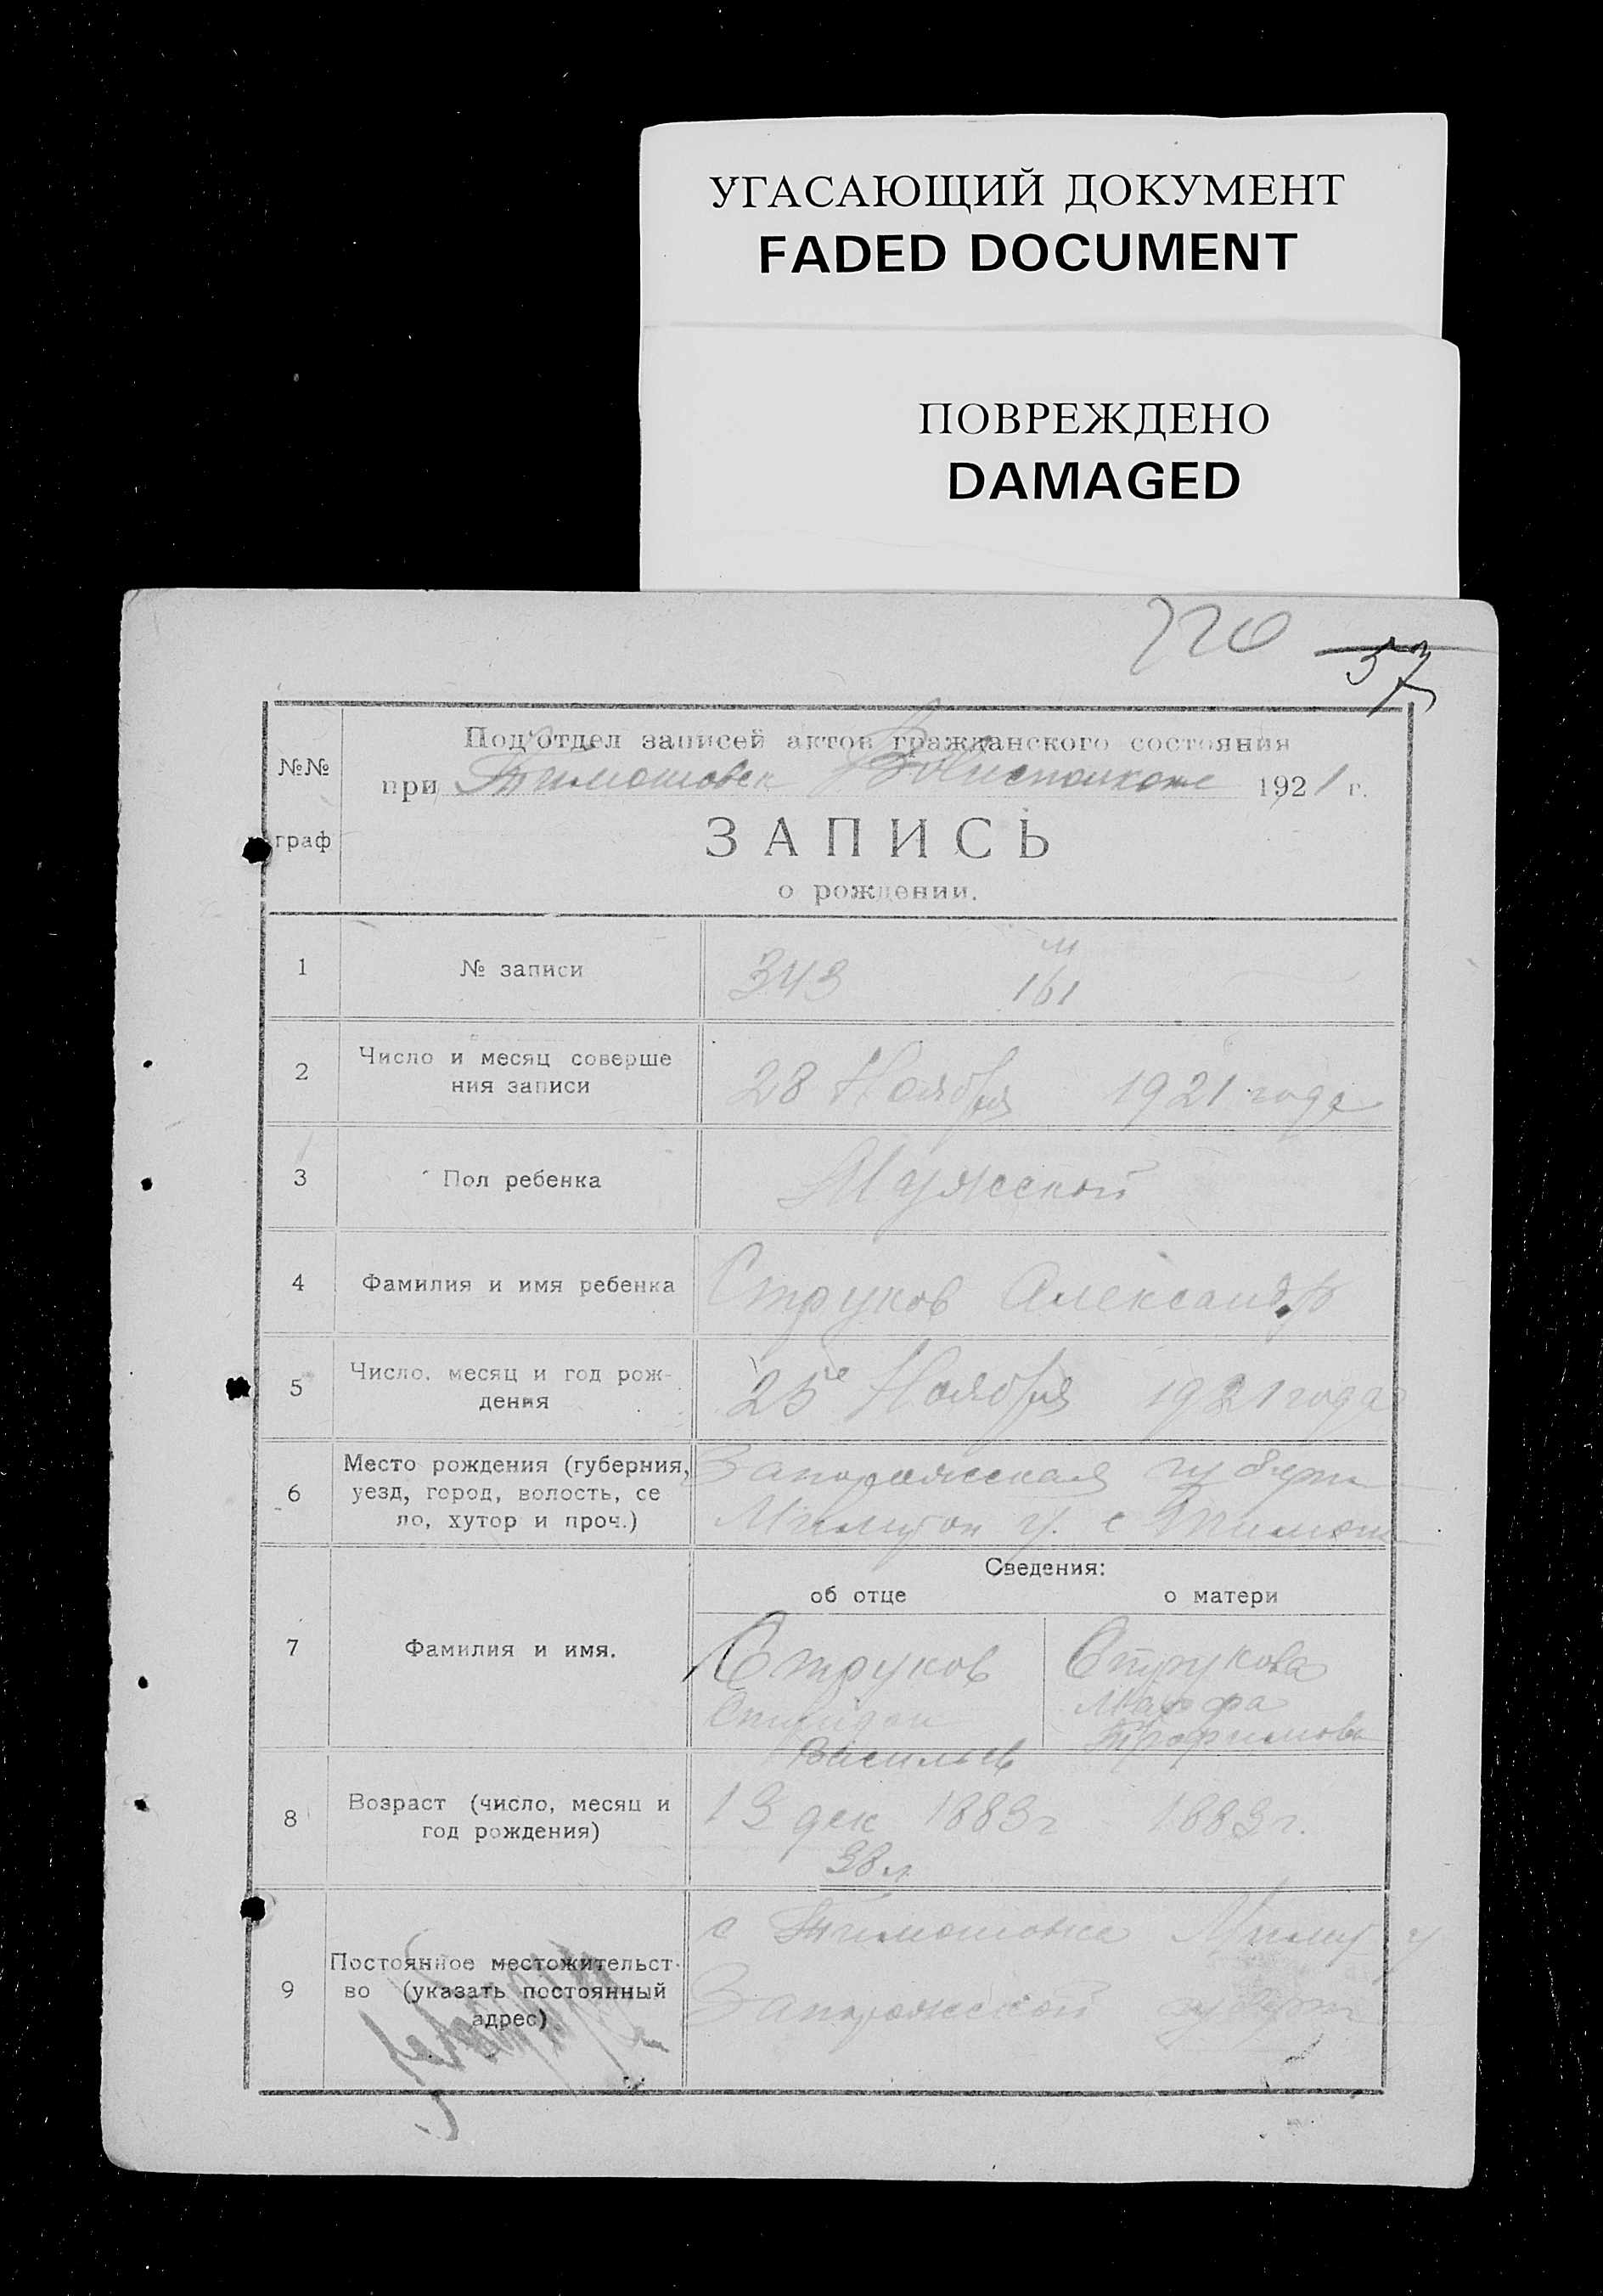 УГАСАЮЩИЙ ДОКУМЕНТ
FADED DOCUMENT
ПОВРЕЖДЕНО
DAMAGED
220
57
№№
граф
Под'отдел записей актов гражданского состояния
при Тимошовск Волисполкоме 1921 г.
ЗАПИСЬ
о рождении.
1
№ записи
343
м
161
2
Число и месяц соверше
ния записи
28 Ноября 1921 года
3
Пол ребенка
Мужской
4
Фамилия и имя ребенка
Струков Александр
5
Число, месяц и год рож-
дения
25е Ноября 1921 года
6
Место рождения (губерния,
уезд, город, волость, се
ло, хутор и проч.)
Запорожская губерн
у. с Тимош
Сведения:
об отце
о матери
7
Фамилия и имя.
Струков
Спиридон
Васильев
Струкова
Марфа
Трофимовн
8
Возраст (число, месяц и
год рождения)
13 дек 1883 г
38 л
1883 г.
9
Постоянное местожительст-
во (указать постоянный
адрес)
с Тимошовка у
Запорожской губерн